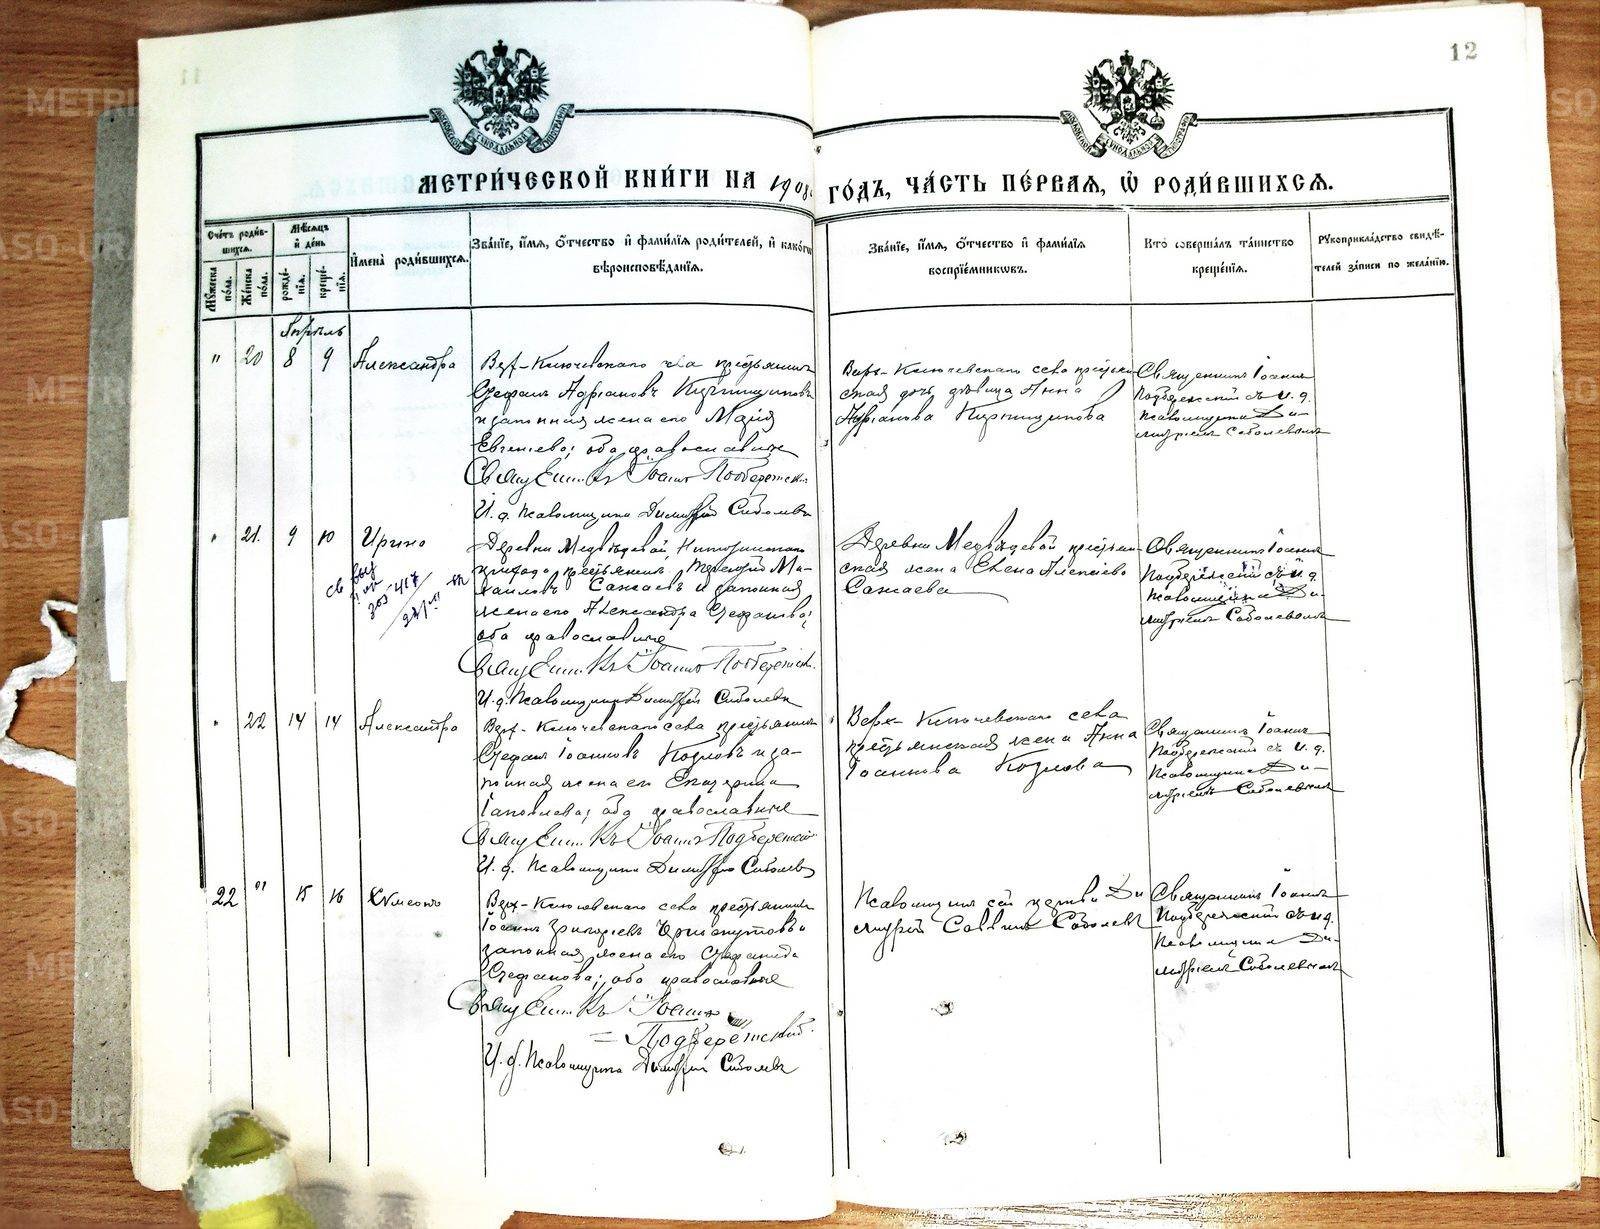 12
МЕТРИ́ЧЕСКОЙ КНИ́ГИ НА 1908 ГО́ДЪ, ЧА́СТЬ ПЕ́РВАЯ, Ѡ҆ РОДИ́ВШИХСѦ.
Сче́тъ роди́в-
шихсѧ.
Му́жеска
по́ла.
Же́нска
по́ла.
Мѣ́сѧцъ
и҆ де́нь
рожде́-
нїѧ.
креще́-
нїѧ.
И҆мена̀ роди́вшихсѧ.
Зва́нїе, и҆́мѧ, ѻ҆́тчество и҆ фами́лїѧ роди́телей, и҆ како́гѡ
вѣроисповѣ́данїѧ.
Зва́нїе, и҆́мѧ, ѻ҆́тчество и҆ фами́лїѧ
воспрїе́мникѡвъ.
Кто̀ соверша́лъ та́инство
креще́нїѧ.
Рꙋкоприкла́дство свидѣ́-
телей за́писи по жела́нїю.
Апрѣль
" 20 8 9 Александра
Верх-Ключевскаго села крестьянинъ
Стефанъ Адріановъ Кирпищиковъ
и законная жена его Марія
Евгеніева; оба православные
Священникъ Іоаннъ Подбережскій
И. д. Псаломщика Димитрій Соболевъ
Верх-Ключевскаго села крестьян-
ская дочь дѣвица Анна
Адріанова Кирпищикова
Священникъ Іоаннъ
Подбережскій съ и. д.
Псаломщика Ди-
митріемъ Соболевымъ
" 21 9 10 Ирина
Деревни Медвѣдевой,
прихода, крестьянинъ Ми-
хаиловъ Сажаевъ и законная
жена его Александра Стефанова;
оба православные
Священникъ Іоаннъ Подбережскій
И. д. Псаломщика Димитрій Соболевъ
Деревни Медвѣдевой крестьян-
ская жена Елена Алексіева
Сажаева
Священникъ Іоаннъ
Подбережскій съ и. д.
Псаломщика Ди-
митріемъ Соболевымъ
" 22 14 14 Александра
Верх-Ключевскаго села крестьянинъ
Стефанъ Іоанновъ Козловъ и за-
конная жена его Екатерина
оба православные
Священникъ Іоаннъ Подбережскій
И. д. Псаломщика Димитрій Соболевъ
Верх-Ключевскаго села
крестьянская жена Анна
Іоаннова Козлова
Священникъ Іоаннъ
Подбережскій съ и. д.
Псаломщика Ди-
митріемъ Соболевымъ
22 " 15 16 Сѵмеонъ
Верх-Ключевскаго села крестьянинъ
Іоаннъ Григоріевъ и
законная жена его Стефанида
Стефанова; оба православные
Священникъ Іоаннъ
Подбережскій
И. д. Псаломщика Димитрій Соболевъ
Псаломщикъ сей церкви Ди
митрій Саввинъ Соболевъ
Священникъ Іоаннъ
Подбережскій съ и. д.
Псаломщика Ди-
митріемъ Соболевымъ